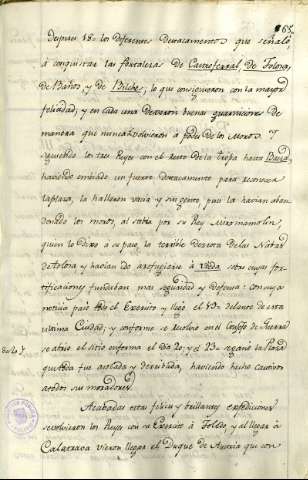 67.
despues 18. los diferentes destacamentos que señaló
á conquistar las fortalezas de Castroferral, de Tolosa,
de Baños y de Bilche; lo que consiguieron con la mayor
felicidad; y en cada una dexaron buenas guarniciones de
manera que nunca volvieron á poder de los Moros. Y
siguiendo los tres Reyes con el resto de la tropa hasta Baeza,
haviendo embiado un fuerte destacamento para reconocer
la plaza, la hallaron vacia y sin gente, pues la havian aban-
donado los moros, al saber por su Rey Miramamolin,
quien lo dixo á su paso, la terrible derrota de las Navas
de Tolosa y havian ido á refugiarse á Ubeda, sobre cuyas for-
tificaciones fundaban mas seguridad y defensa: con cuya
noticia pasó el Exercito y llegó el 19. delante de esta
misma Ciudad; y conforme se resolvió en el Consejo de Guerra
se abrió el sitio en forma el dia 20; y el 23. se ganó la Plaza
que toda fue asolada y derribada, haviendo hecho cautivos
á todos sus moradores.
Acabadas estas felices y brillantes expediciones
se volvieron los Reyes con su Exercito á Toledo, y al llegar á
Calatrava vieron llegar el Duque de Austria que con